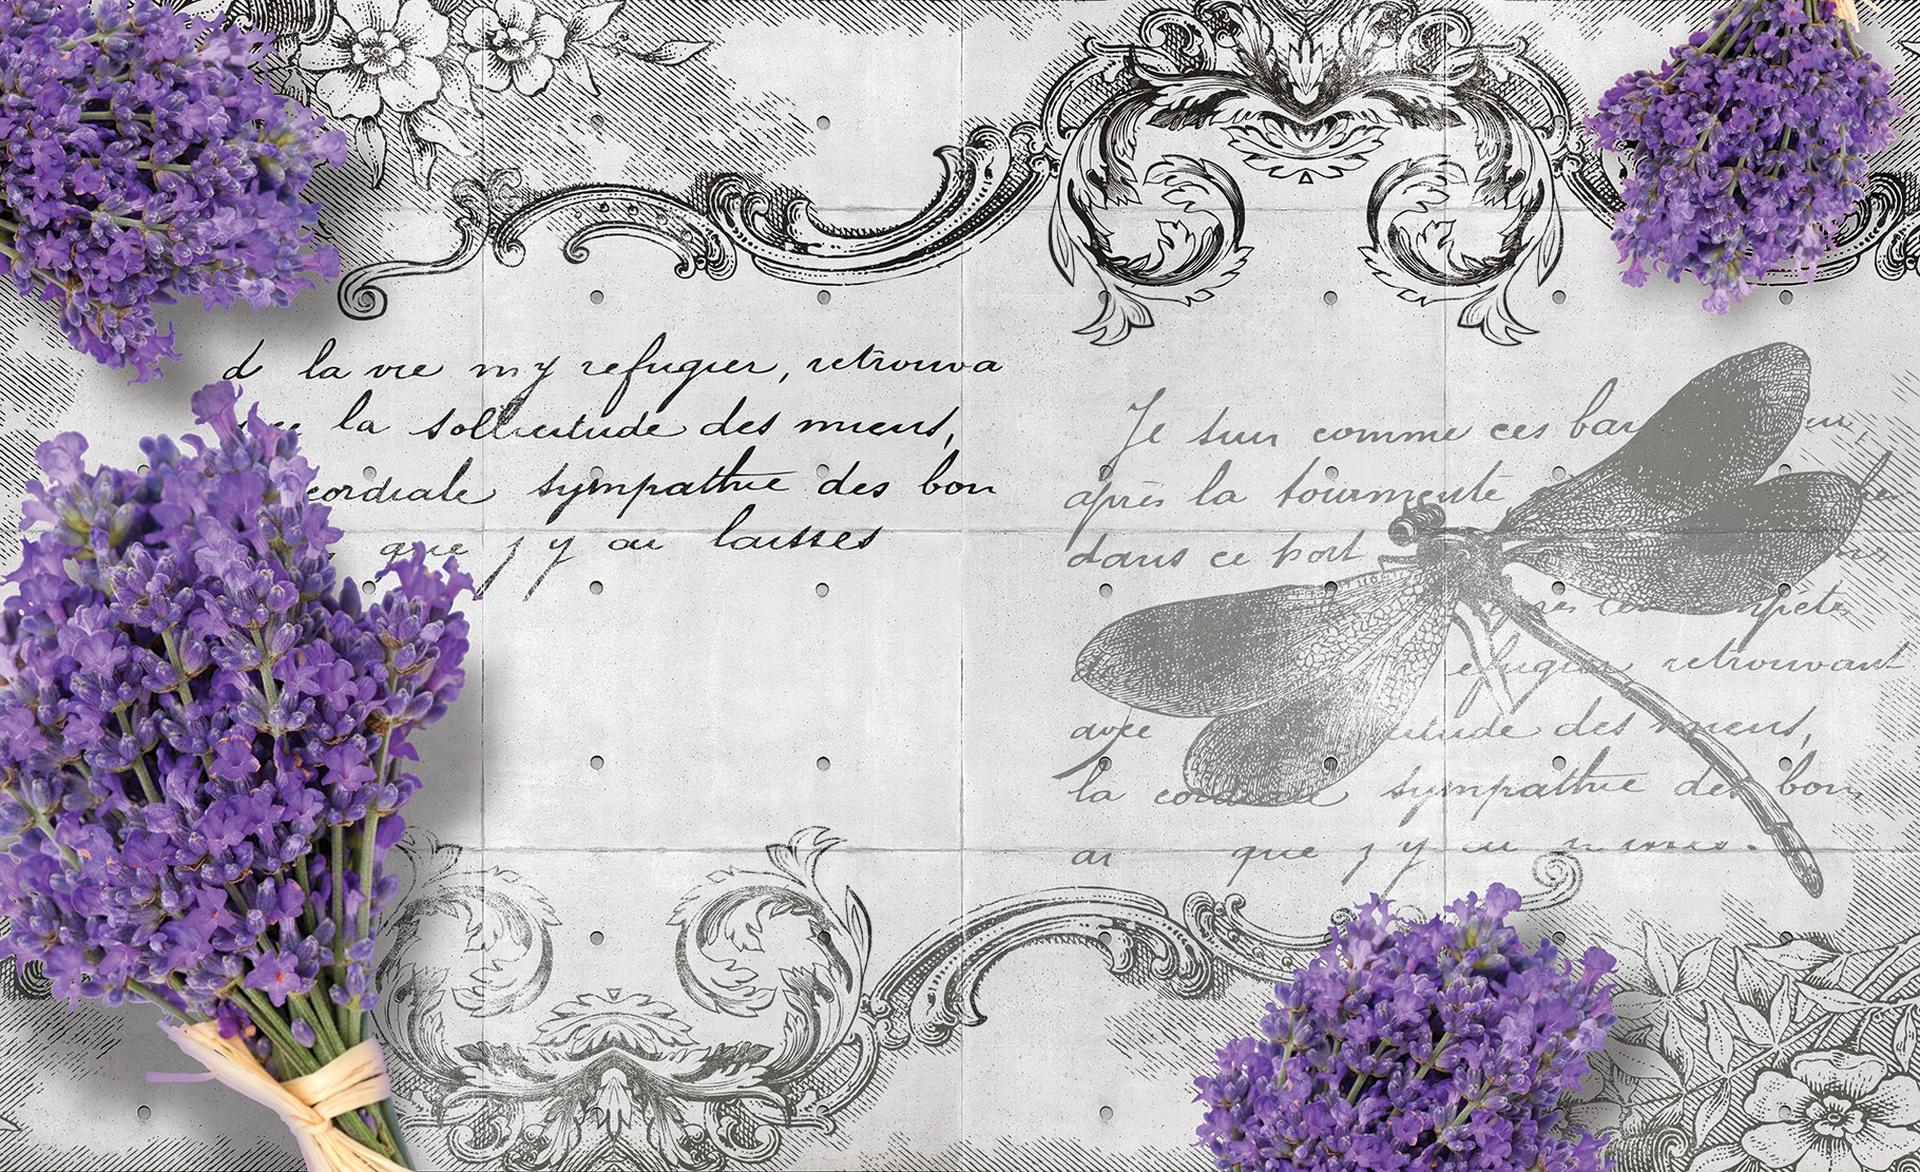 d la vie my refugier, retrouva
la sollicitude des miens,
cordiale sympathie des bon
que j y ai laisses
Je suis comme ces bar
après la tourmente
dans ce port
refugier retrouvant
avec itude des miens,
la cordiale sympathie des bon
ai que j y ai